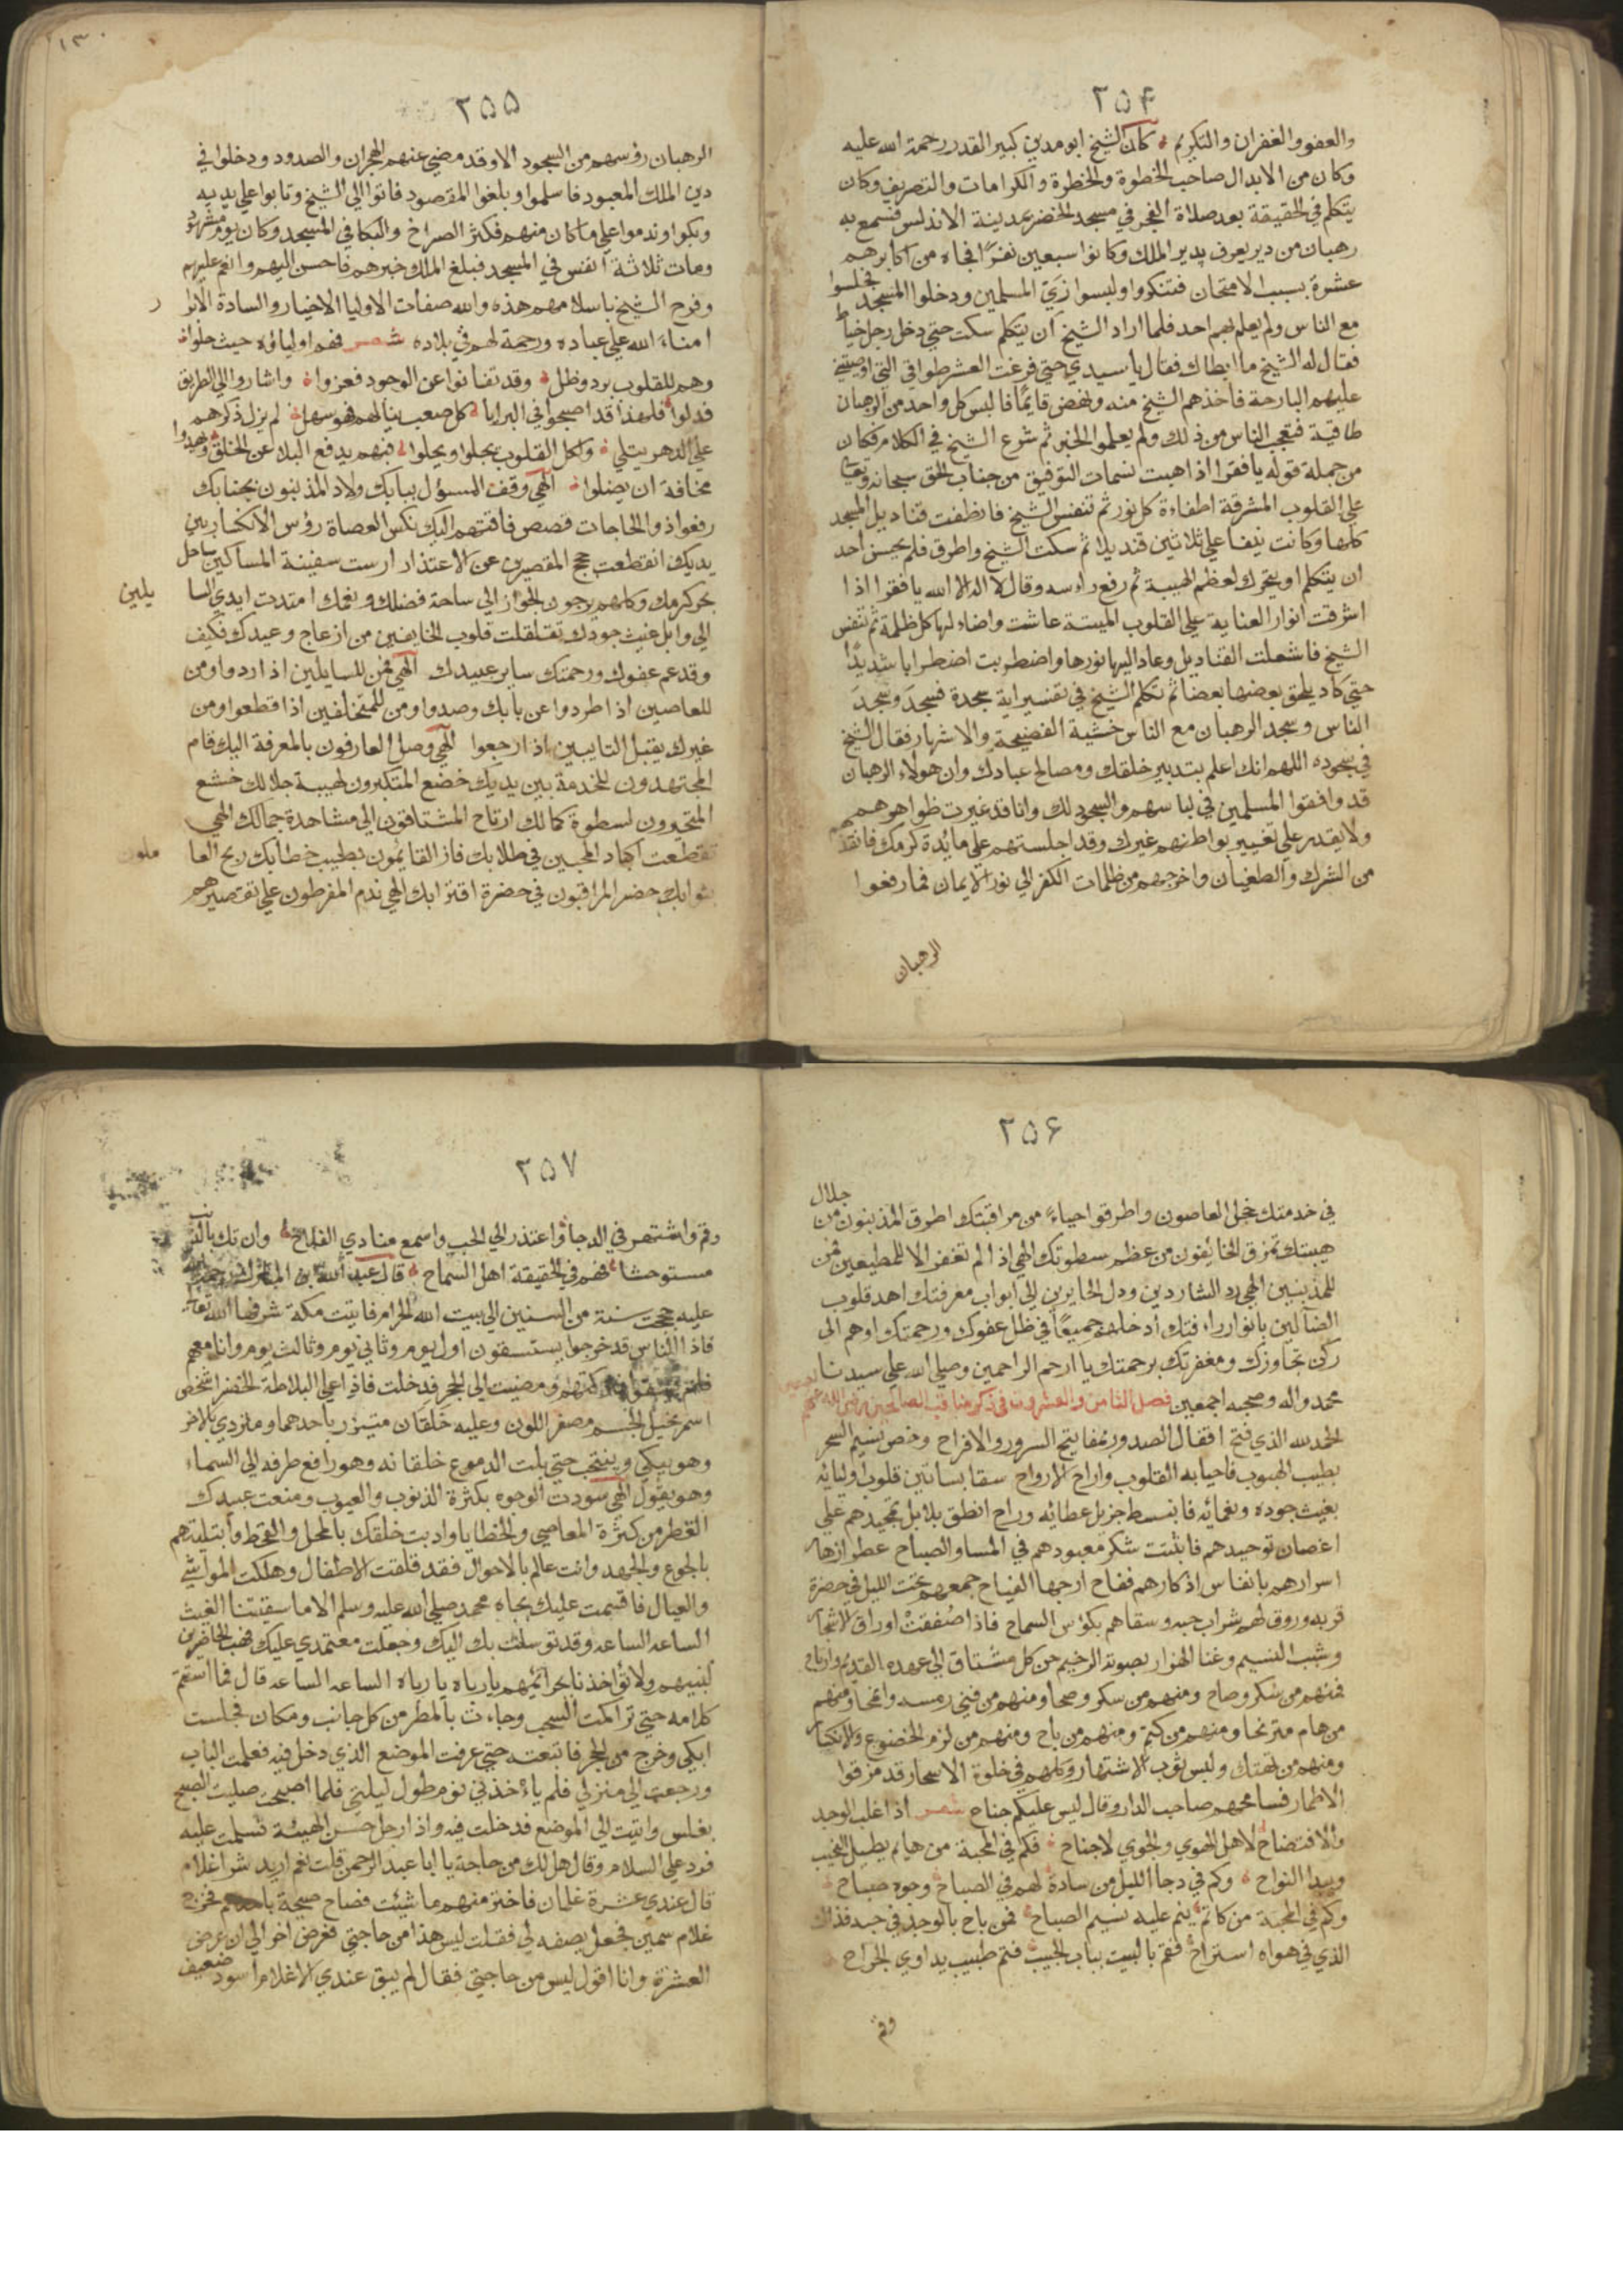 ٢٥۴
والعفو والغفران والتكريم كان الشيخ ابو مدين كبير القدر رحمة الله عليه
وكان من الابدال صاحب الخطوة والخطرة والكرامات والتصريف وكان
يتكلم في الحقيقة بعد صلاة الفجر في مسجد الخضر بمدينة الاندلس فسمع به
رهبان من دير يعرف بدير الملك وكانوا سبعين نفرًا فجاء من اكابرهم
عشرة بسبب الامتحان فتنكروا ولبسوا زي المسلمين ودخلوا المسجد فجلسوا
مع الناس ولم يعلم بهم احد فلما اراد الشيخ ان يتكلم سكت حتي دخل رجل خياط
فقال له الشيخ ما ابطاك فقال يا سيدي حتي فرغت العشر طواقي التي اوصيتني
عليهم البارحة فاخذهم الشيخ منه ونهض قايمًا فالبس كل واحد من الرهبان
طاقية فتعجب الناس من ذلك ولم يعلموا الخبر ثم شرع الشيخ في الكلام فكان
من جملة قوله يا فقرا اذا هبت نسمات التوفيق من جناب الحق سبحانه وتعالي
علي القلوب المشرقة اطفاءة كل نور ثم تنفس الشيخ فانطفت قناديل المسجد
كلها وكانت نيفا علي ثلاثين قنديلا ثم سكت الشيخ واطرق فلم يجسر احد
ان يتكلم او يتحرك لعظم الهيبة ثم رفع راسه وقال لا اله الا الله يا فقرا اذا
اشرقت انوار العناية علي القلوب الميتة عاشت واضاء لها كل ظلمة ثم تنفس
الشيخ فاشعلت القناديل وعاد اليها نورها واضطربت اضطرابا شديدًا
حتي كاد يلحق بعضها بعضا ثم تكلم الشيخ في تفسير اية سجدة فسجد وسجد
الناس وسجد الرهبان مع الناس خشية الفضيحة والاشهار فقال الشيخ
في سجوده اللهم انك اعلم بتدبير خلقك ومصالح عبادك وان هولاء الرهبان
قد وافقوا المسلمين في لباسهم والسجود لك وانا قد غيرت ظواهرهم
ولا يقدر علي تغيير بواطنهم غيرك وقد اجلستهم علي مائدة كرمك فانقذهم
من الشرك والطغيان واخرجهم من ظلمات الكفر الي نور الايمان فما رفعوا
الرهبان
١٣٠
٢۵۵
الرهبان رؤسهم من السجود الا وقد مضي عنهم الهجران والصدود ودخلوا في
دين الملك المعبود فاسلموا وبلغوا المقصود فاتوا الي الشيخ وتابوا علي يديه
وبكوا وندموا علي ما كان منهم فكثر الصراخ والبكا في المسجد وكان يوم مشهود
ومات ثلاثة انفس في المسجد فبلغ الملك خبرهم فاحسن اليهم وانعم عليهم
وفرح الشيخ باسلامهم هذه والله صفات الاوليا الاخيار والسادة الابرا ر
امناء الله علي عباده ورحمة لهم في بلاده شعر فهم اولياؤه حيث حلوا
وهم للقلوب برد وظل وقد تفانوا عن الوجود فعزوا واشاروا الي الطريق
فدلوا فلهذا قد اصبحوا في البرايا كل صعب ينالهم فهو سهل لم يزل ذكرهم
علي الدهر يتلي ولكل القلوب يجلوا ويحلوا فبهم يدفع البلا عن الخلق ويهدوا
مخافة ان يضلوا الهي وقف المسؤل ببابك ولاد المذنبون بجنابك
رفعوا ذو الحاجات قصص فاقتهم اليك نكس العصاة رؤس الانكسار بين
يديك انقطعت حجج المقصرين عن الاعتذار ارست سفينة المساكين بساحل
بحر كرمك وكلهم يرجون الجواز الي ساحة فضلك ونعمك امتدت ايدي السا يلين
الي وابل غيث جودك تقلقلت قلوب الخايفين من ازعاج وعيدك فكيف
وقد عم عفوك ورحمتك ساير عبيدك الهي فمن للسايلين اذا ردوا ومن
للعاصين اذا طردوا عن بابك وصدوا ومن للمتخلفين اذا قطعوا ومن
غيرك يقبل التايبين اذا رجعوا الهي وصل العارفون بالمعرفة اليك قام
المجتهدون للخدمة بين يديك خضع المتكبرون لهيبة جلالك خشع
المتحيرون لسطوة كمالك ارتاح المشتاقون الي مشاهدة جمالك الهي
تقطعت اكباد المحبين في طلابك فاز القائمون بطيب خطابك ربح العا ملون
ثوابك حضر المراقبون في حضرة اقترابك الهي ندم المفرطون علي تقصيرهم
٢٥۶
في خدمتك خجل العاصون واطرقوا حياءً من مراقبتك اطرق المذنبون من جلال
هيبتك تمزق الخائفون من عظم سطوتك الهي اذا لم تغفر الا للمطيعين فمن
للمذنبين الهي رد الشاردين ودل الحايرين الي ابواب معرفتك اهد قلوب
الضالين بانوار رافتك ادخلهم جميعًا في ظل عفوك ورحمتك اوهم الي
ركن تجاوزك ومغفرتك برحمتك يا ارحم الراحمين وصلي الله علي سيدنا
محمد واله وصحبه اجمعين فصل الثامن والعشرون في ذكر مناقب الصالحين رضي الله عنهم
الحمد لله الذي فتح اقفال الصدور بمفاتيح السرور والافراح وخص نسيم السحر
بطيب الهبوب فاحيا به القلوب واراح الارواح سقا بساتين قلوب اوليائه
بغيث جوده ونعمائه فانبسط جزيل عطائه وراح انطق بلابل تمجيدهم علي
اغصان توحيدهم فابثت شكر معبودهم في المسا والصباح عطر ازهار
اسرارهم بانفاس اذكارهم ففاح ارجها الفياح جمعهم تحت الليل في حضرة
قربه وروق لهم شراب حبه وسقاهم بكؤس السماح فاذا صفقت اوراق الاشجار
وشبب النسيم وغنا الهزار بصوته الرخيم حن كل مشتاق الي عهده القديم وارتاح
فمنهم من شكر وصاح ومنهم من سكر وصحا ومنهم من فني رمسه وانمحا ومنهم
من هام مترنحا ومنهم من كتم ومنهم من باح ومنهم من لزم الخضوع والانكسار
ومنهم من تهتك ولبس ثوب الاشتهار وكلهم في خلوة الاسحار قد مزقوا
الاطمار فسامحهم صاحب الدار وقال ليس عليكم جناح شعر اذا غلب الوجد
والافتضاح لاهل الهوي والجوي لا جناح فكم في المحبة من هايم يطيل النحيب
ويبدا النواح وكم في دجا الليل من سادة لهم في الصباح وجوه صباح
وكم في المحبة من كاتم ينم عليه نسيم الصباح فمن باح بالوجد في حبه فذاك
الذي في هواه استراح فقم بالبيت بباب الحبيب فثم طبيب يداوي الجراح
وقم
٢۵٧
وقم واشتهر في الدجا واعتذر الي الحب واسمع منادي الفلاح وان تك بالذنب
مستوحشا فهم في الحقيقة اهل السماح قال عبد الله بن المبارك رحمة الله
عليه حججت سنة من السنين الي بيت الله الحرام فاتيت مكة شرفها الله تعالي
فاذا الناس قد خرجوا يستسقون اول يوم وثاني يوم وثالث يوم وانا معهم
فلم يسقوا فتركتهم ومضيت الي الحجر فدخلت فاذا علي البلاطة الخضرا شخص
اسمر نحيل الجسم مصفر اللون وعليه خلقان متيزر باحدهما ومتردي بالاخر
وهو يبكي وينتحب حتي بلت الدموع خلقانه وهو رافع طرفه الي السماء
وهو يقول الهي سودت الوجوه بكثرة الذنوب والعيوب ومنعت عبيدك
القطر من كثرة المعاصي والخطايا وادبت خلقك بالمحل والقحط وابتليتهم
بالجوع والجهد وانت عالم بالاحوال فقد قلقت الاطفال وهلكت المواشي
والعيال فاقسمت عليك بجاه محمد صلي الله عليه وسلم الا ما سقيتنا الغيث
الساعه الساعه وقد توسلت بك اليك وجعلت معتمدي عليك فهب الحاضرين
لنبيهم ولا تؤاخذنا بجرائمهم يا رباه يا رباه الساعه الساعه قال فما استتم
كلامه حتي تراكمت السحب وجاءت بالمطر من كل جانب ومكان فجلست
ابكي وخرج من الحجر فاتبعته حتي عرفت الموضع الذي دخل فيه فعلمت الباب
ورجعت الي منزلي فلم ياءخذني نوم طول ليلتي فلما اصبحت صليت الصبح
بغلس واتيت الي الموضع فدخلت فيه واذا رجل حسن الهيئة فسلمت عليه
فرد علي السلام وقال هل لك من حاجة يا ابا عبد الرحمن قلت نعم اريد شرا غلام
قال عندي عشرة غلمان فاختر منهم ما شيئت فصاح صيحة باحدهم فخرج
غلام سمين فجعل يصفه لي فقلت ليس هذا من حاجتي فعرض اخر الي ان عرض
العشرة وانا اقول ليس من حاجتي فقال لم يبق عندي الا غلام اسود ضعيف